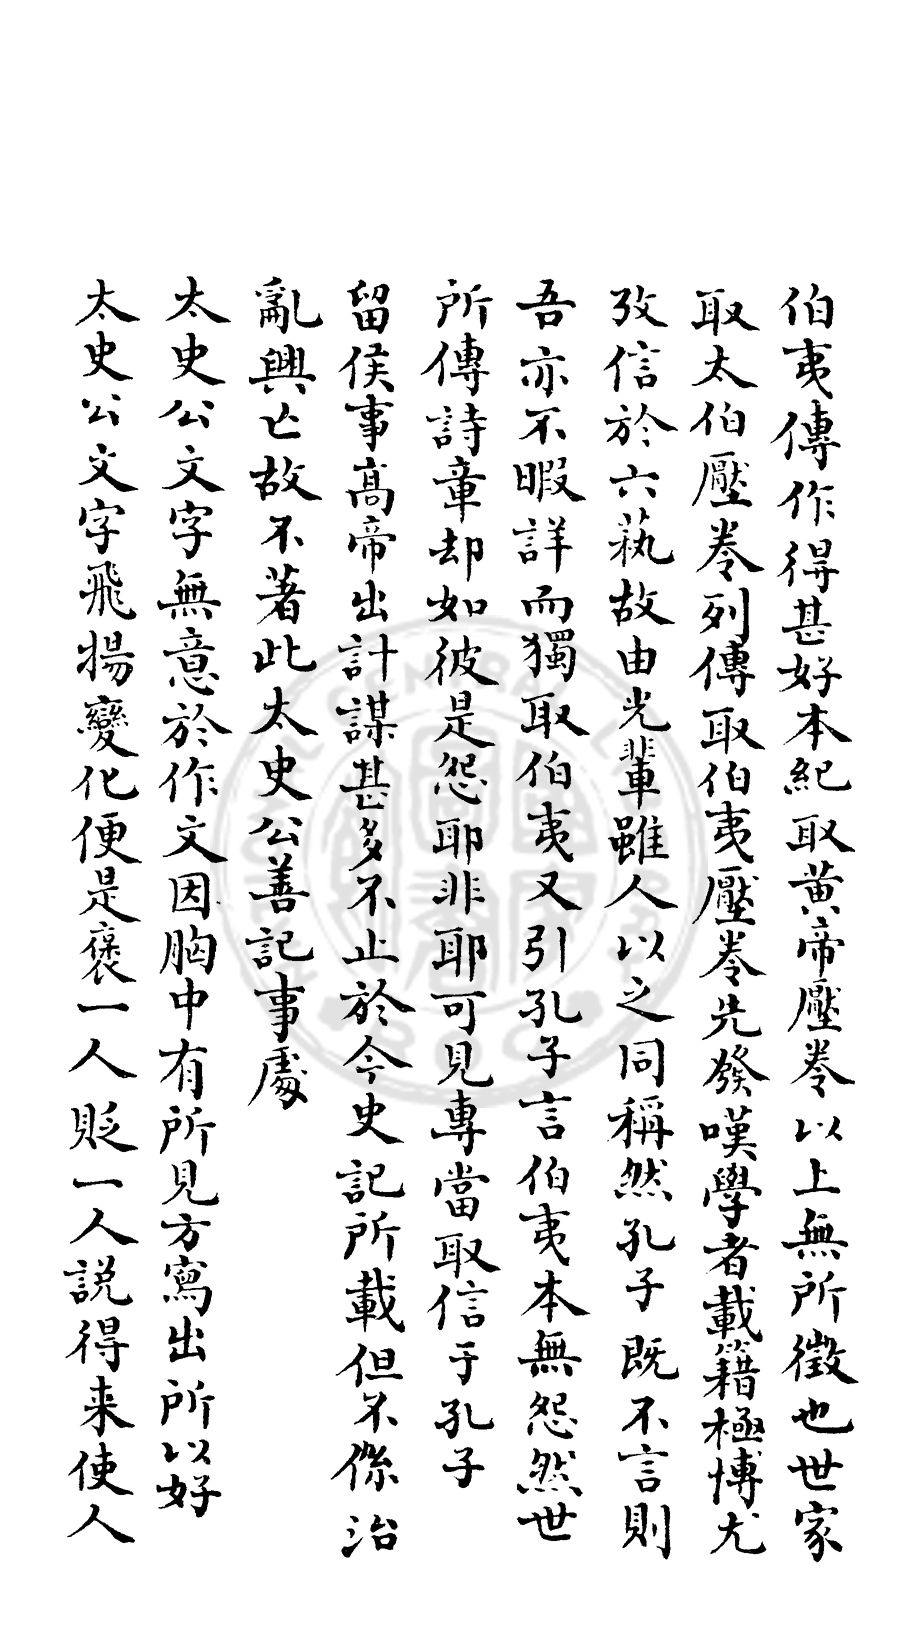 伯夷傳作得甚好本紀取黄帝壓卷以上無所徵也世家
取太伯壓卷列傳取伯夷壓卷先發嘆學者載籍極博尤
攷信於六蓺故由光軰雖人以之同稱然孔子既不言則
吾亦不暇詳而獨取伯夷又引孔子言伯夷本無怨然世
所傳詩章却如彼是怨耶非耶可見專當取信于孔子
留侯事髙帝出計謀甚多不止於今史記所載但不係治
亂興亡故不著此太史公善記事處
太史公文字無意於作文因胸中有所見方寫出所以好
太史公文字飛揚變化便是褒一人貶一人説得来使人